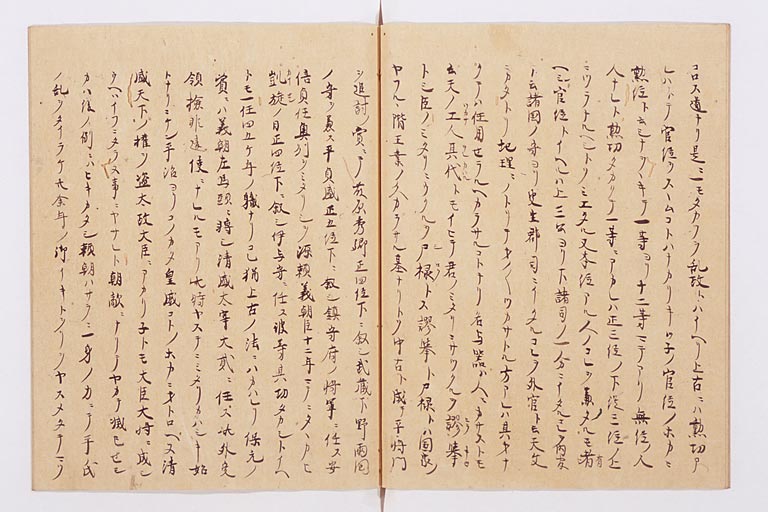 コロス道ナリ是ニモタカフヲ乱政トハイヘリ上古ニハ勲功ア
レハトテ官位ヲスヽムコトハナカリキツ子ノ官位ノホカニ
勲位ト云シナヲヲキテ一等ヨリ十二等マテアリ無位ノ人
ナレト勲功タカクテ一等ニアカレハ正三位ノ下従三位ノ上
ニツラナルヘシトソミエタル又本位アル人ノコレヲ兼タルモ有
ヘシ官位トイヘルハ上三公ヨリ下諸司ノ一分ニイタルコレヲ内官
ト云諸国ノ守ヨリ史生郡司ニイタルコレヲ外官ト云天文
ニカタトリ地理ニノトリテヲノ〱ツカサトル方アレハ其才
ナクテハ任用セラルヘカラサルコトナリ名与器ハ人ニカサストモ
云天ノ工人其代トモイヒテ君ノミタリニサツクルヲ謬挙
トシ臣ノミタリニウクルヲ尸禄トス謬挙ト尸禄トハ国家ノ
ヤフルヽ階王業ノ久カラサル基ナリトソ中古ト成テ平将門
ヲ追討ノ賞ニテ藤原秀郷正四位下ニ叙シ武蔵下野両国
ノ守ヲ兼ス平貞盛正五位下ニ叙シ鎮守府ノ将軍ニ任ス安
倍貞任奥州ヲミタリシヲ源頼義朝臣十二年マテニタヽカヒ
凱旋ノ日正四位下ニ叙シ伊与守ニ任ス彼等其功タカシトイヘ
トモ一任四五ケ年ノ職ナリコレ猶上古ノ法ニハカハレリ保元ノ
賞ニハ義朝左馬頭ニ転シ清盛太宰大貳ニ任ス此外受
領検非違使ニナレルモアリ此時ヤステニミタリカハシキ始
トナリニケン平治ヨリコノカタ皇威コトノホカニオトロヘヌ清
盛天下ノ権ヲ盗太政大臣ニアカリ子トモ大臣大将ニ成シ
ウヘハイフニタラヌ事ニヤサレト朝敵ニナリテヤカテ滅亡セシ
カハ後ノ例ニハヒキカタシ頼朝ハサラニ一身ノ力ニテ平氏
ノ乱ヲタイラケ廿余年ノ御イキトヲリヲヤスメタテマツリ